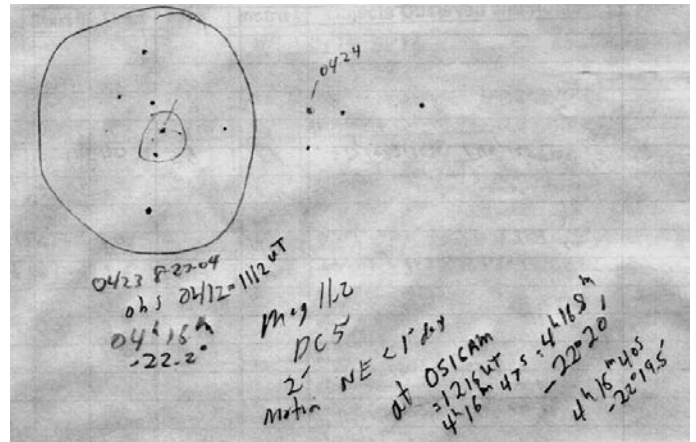 0424
0423 8-22-04
obs 0412 = 1112 UT
04h 16m
-22.2°
Mag 11.2
DC5
2'
Motion NE < 1° day
at 0516AM
=1216UT
4h 16m 47s = 4h 16.8m
-22° 20'
4h 16m 40s
-22° 19.5